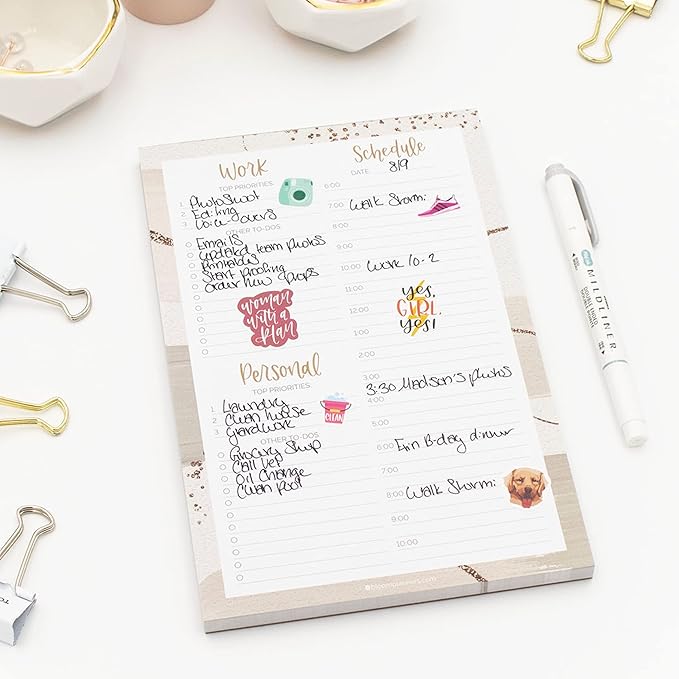 Work
TOP PRIORITIES
1 Photoshoot
2 Editing
3 Voice overs
OTHER TO-DOS
Emails
updated team photos
Printables
Start Proofing
order new props
woman
with a
plan
Personal
TOP PRIORITIES
1 Laundry
2 Clean house
3 yardwork
OTHER TO-DOS
Grocery Shop
Call Vet
Oil Change
Clean pool
CLEAN
Schedule
DATE 8/9
6:00
7:00 Walk Stormi
8:00
9:00
10:00 Work 10-2
11:00
12:00
yes,
GIRL,
yes!
1:00
2:00
3:00
3:30 Madson's photos
4:00
5:00
6:00 Erin B-day dinner
7:00
8:00 Walk Stormi
9:00
10:00
bloomplanners.com
MILDLINER
DOUBLE ENDED